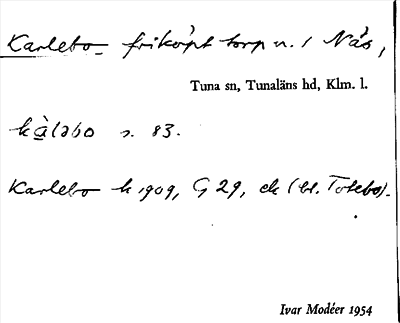 Karlebo friköpt torp u. / Nås,
Tuna sn, Tunaläns hd, Klm. l.
kàləbo s. 83.
Karlebo k 1909, G 29, ek (bl. Totebo).
Ivar Modéer 1954